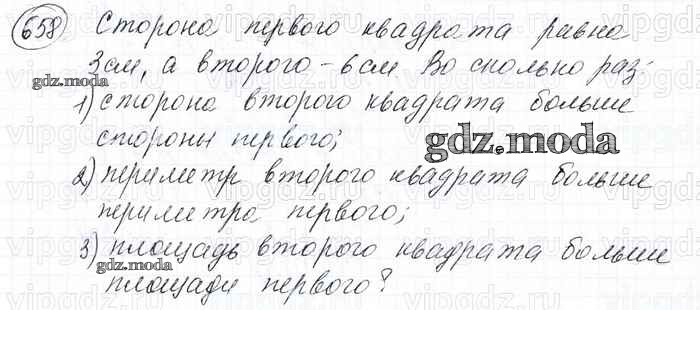 658 Сторона первого квадрата равна
3 см, а второго – 6 см. Во сколько раз:
gdz.moda
1) сторона второго квадрата больше
стороны первого;
gdz.moda
2) периметр второго квадрата больше
периметра первого;
3) площадь второго квадрата больше
gdz.moda
площади первого?
vipgdz.ru